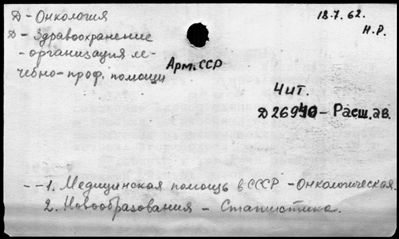 Д - Онкология
18.7.62.
Д - Здравоохранение
Н.Р.
- организация ле-
чебно-проф. помощи
Арм.ССР
Чит.
Д26940 - Расш.ав.
--1. Медицинская помощь в СССР - Онкологическая.
2. Новообразования - Статистика.